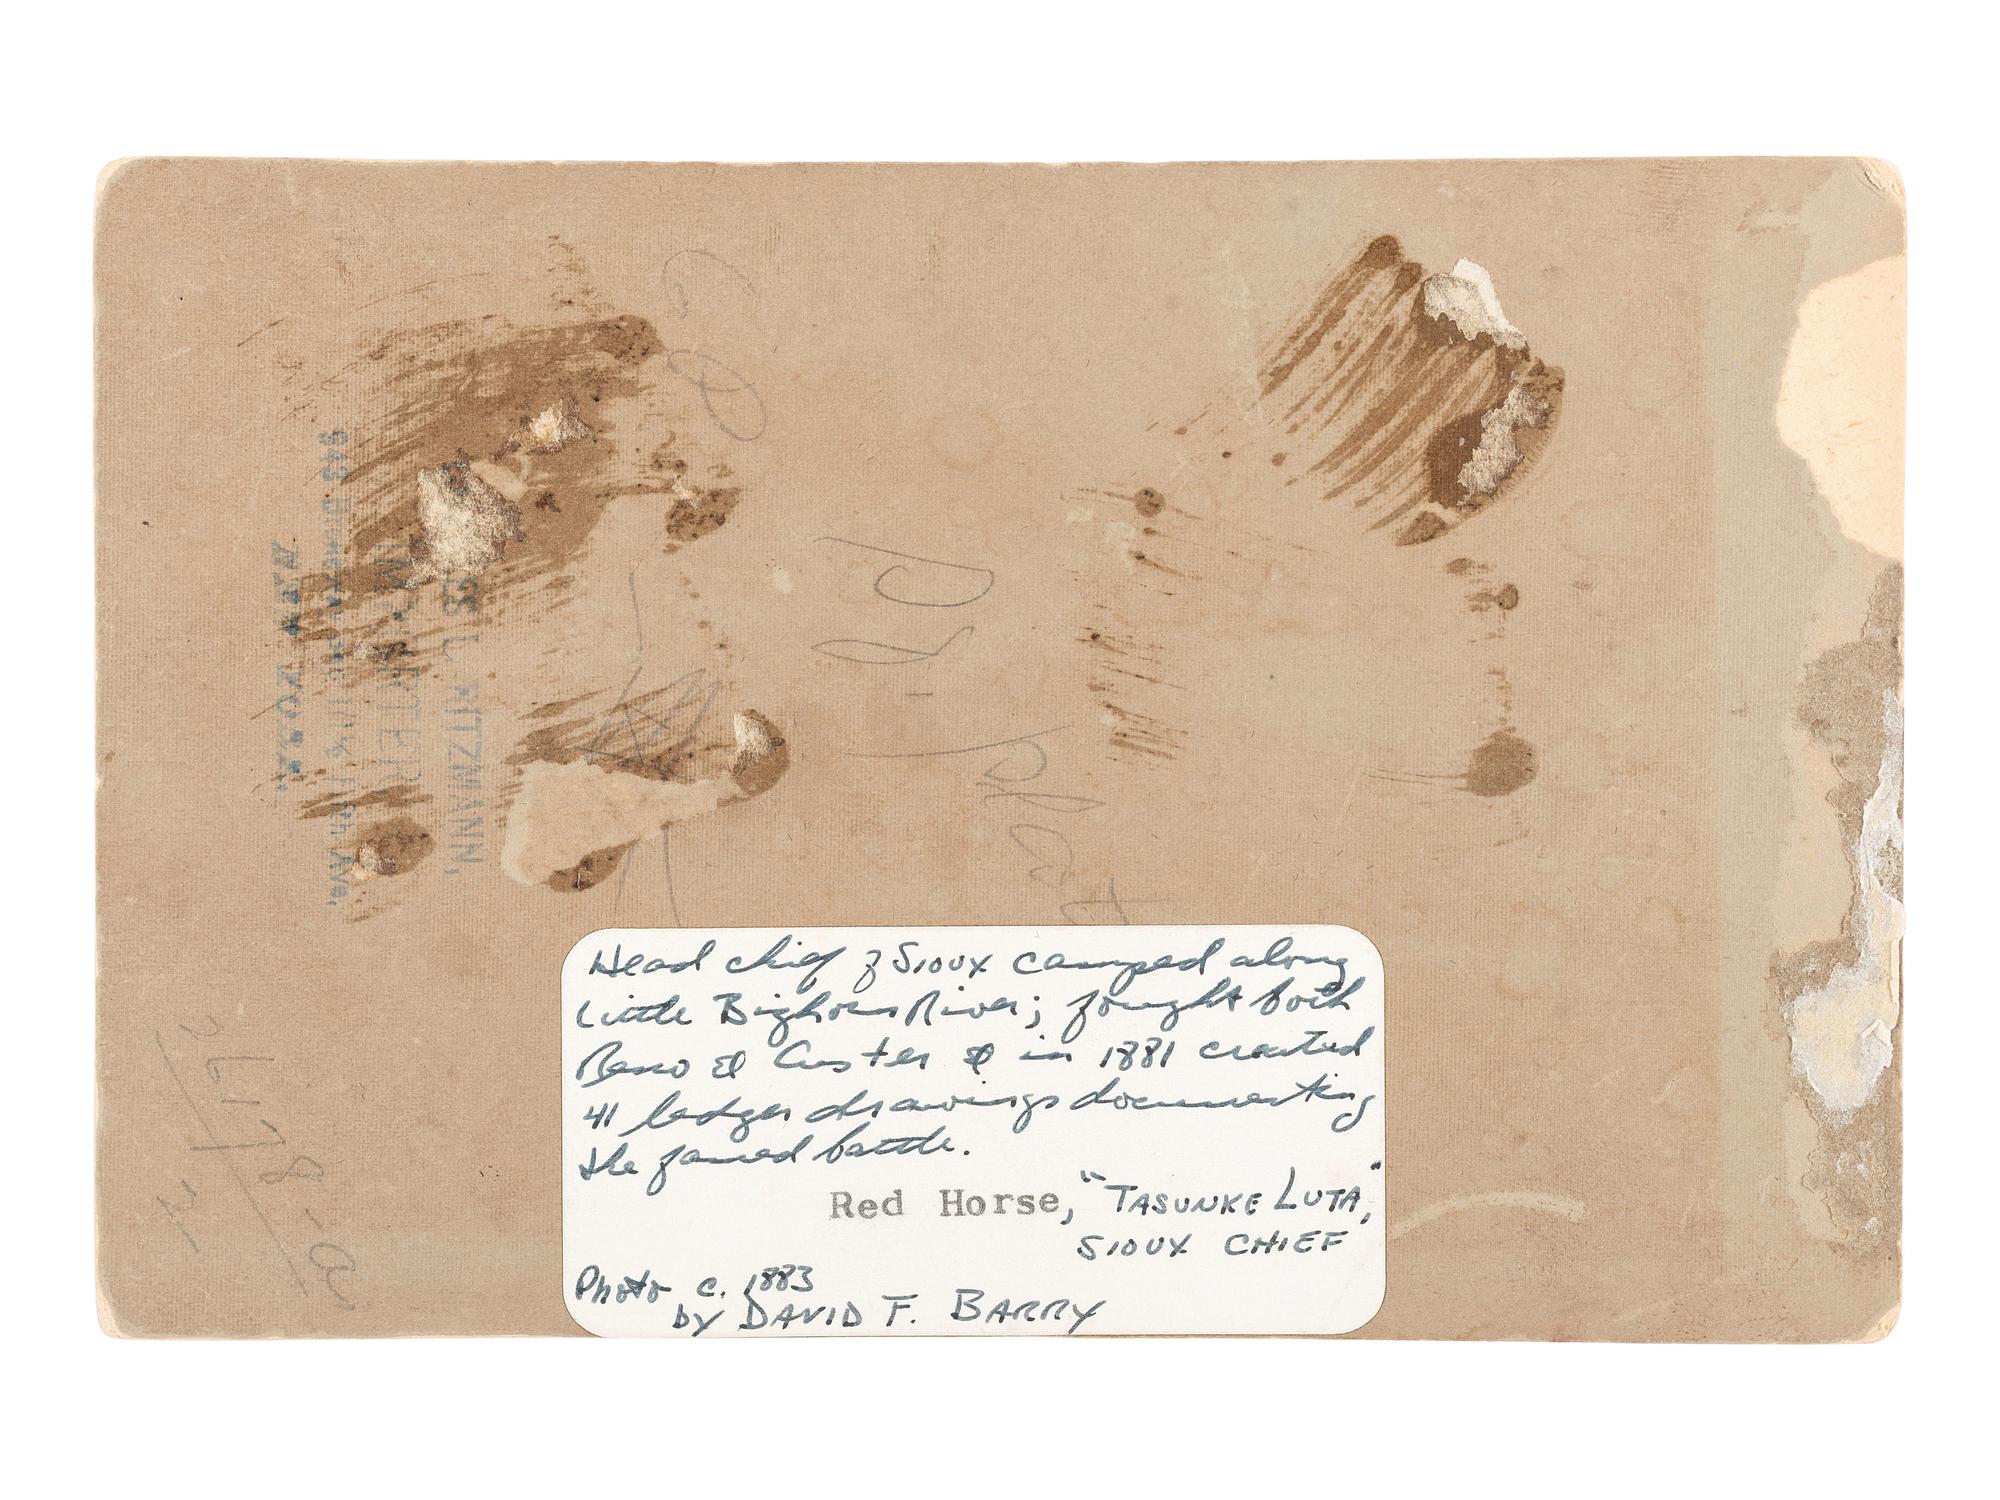 Head chief of Sioux camped along
Little Bighorn River; fought both
Reno & Custer & in 1881 created
41 ledger drawings documenting
the famed battle.
Red Horse, "TASUNKE LUTA,"
SIOUX CHIEF
Photo c. 1883
by DAVID F. BARRY
L. FITZMANN,
IMPORTER
943 Ave.
NEW YORK.